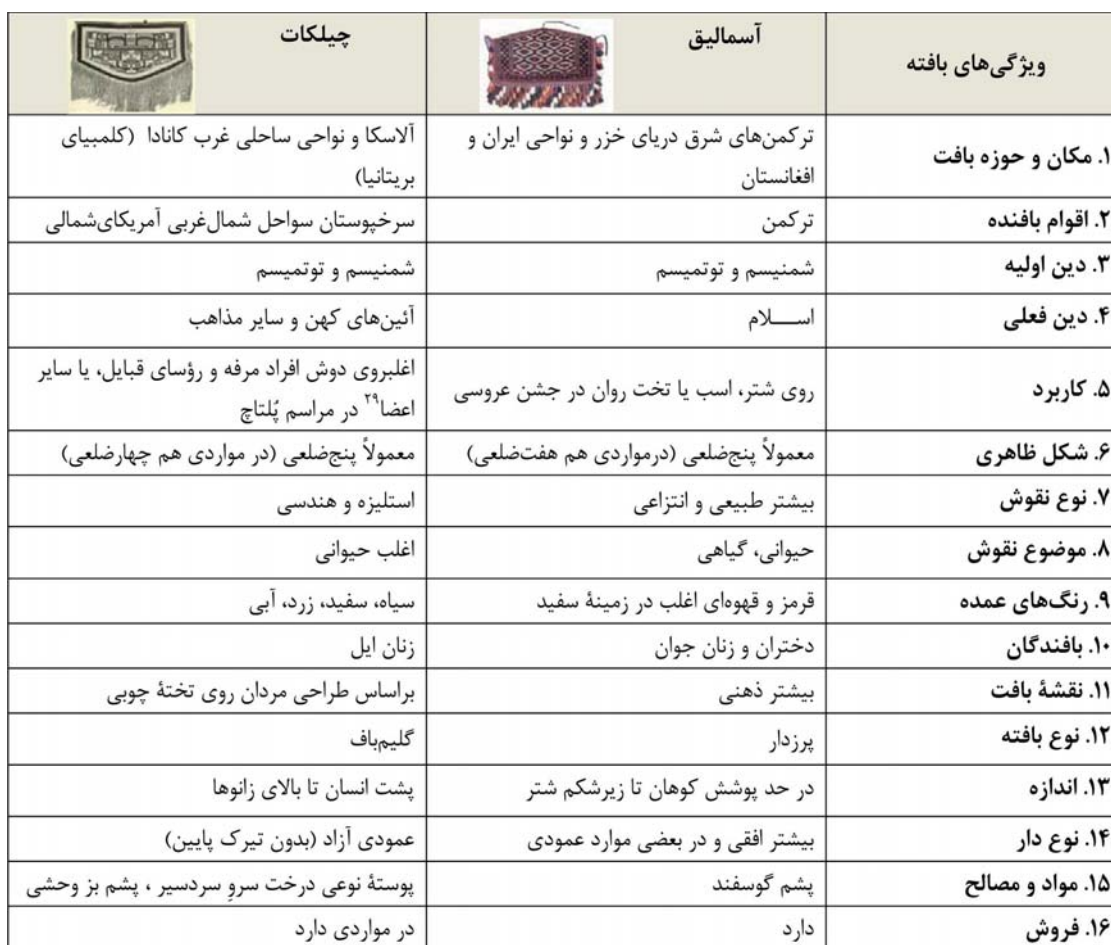 ویژگی‌های بافته
آسمالیق
چیلکات
۱. مکان و حوزه بافت
ترکمن‌های شرق دریای خزر و نواحی ایران و
افغانستان
آلاسکا و نواحی ساحلی غرب کانادا (کلمبیای
بریتانیا)
۲. اقوام بافنده
ترکمن
سرخپوستان سواحل شمال‌غربی آمریکای‌شمالی
۳. دین اولیه
شمنیسم و توتمیسم
شمنیسم و توتمیسم
۴. دین فعلی
اســـلام
آئین‌های کهن و سایر مذاهب
۵. کاربرد
روی شتر، اسب یا تخت روان در جشن عروسی
اغلبروی دوش افراد مرفه و رؤسای قبایل، یا سایر
اعضا۲۹ در مراسم پُلتاچ
۶. شکل ظاهری
معمولاً پنج‌ضلعی (درمواردی هم هفت‌ضلعی)
معمولاً پنج‌ضلعی (در مواردی هم چهارضلعی)
۷. نوع نقوش
بیشتر طبیعی و انتزاعی
استلیزه و هندسی
۸. موضوع نقوش
حیوانی، گیاهی
اغلب حیوانی
۹. رنگ‌های عمده
قرمز و قهوه‌ای اغلب در زمینهٔ سفید
سیاه، سفید، زرد، آبی
۱۰. بافندگان
دختران و زنان جوان
زنان ایل
۱۱. نقشهٔ بافت
بیشتر ذهنی
براساس طراحی مردان روی تختهٔ چوبی
۱۲. نوع بافته
پرزدار
گلیم‌باف
۱۳. اندازه
در حد پوشش کوهان تا زیرشکم شتر
پشت انسان تا بالای زانوها
۱۴. نوع دار
بیشتر افقی و در بعضی موارد عمودی
عمودی آزاد (بدون تیرک پایین)
۱۵. مواد و مصالح
پشم گوسفند
پوستهٔ نوعی درخت سروِ سردسیر ، پشم بز وحشی
۱۶. فروش
دارد
در مواردی دارد